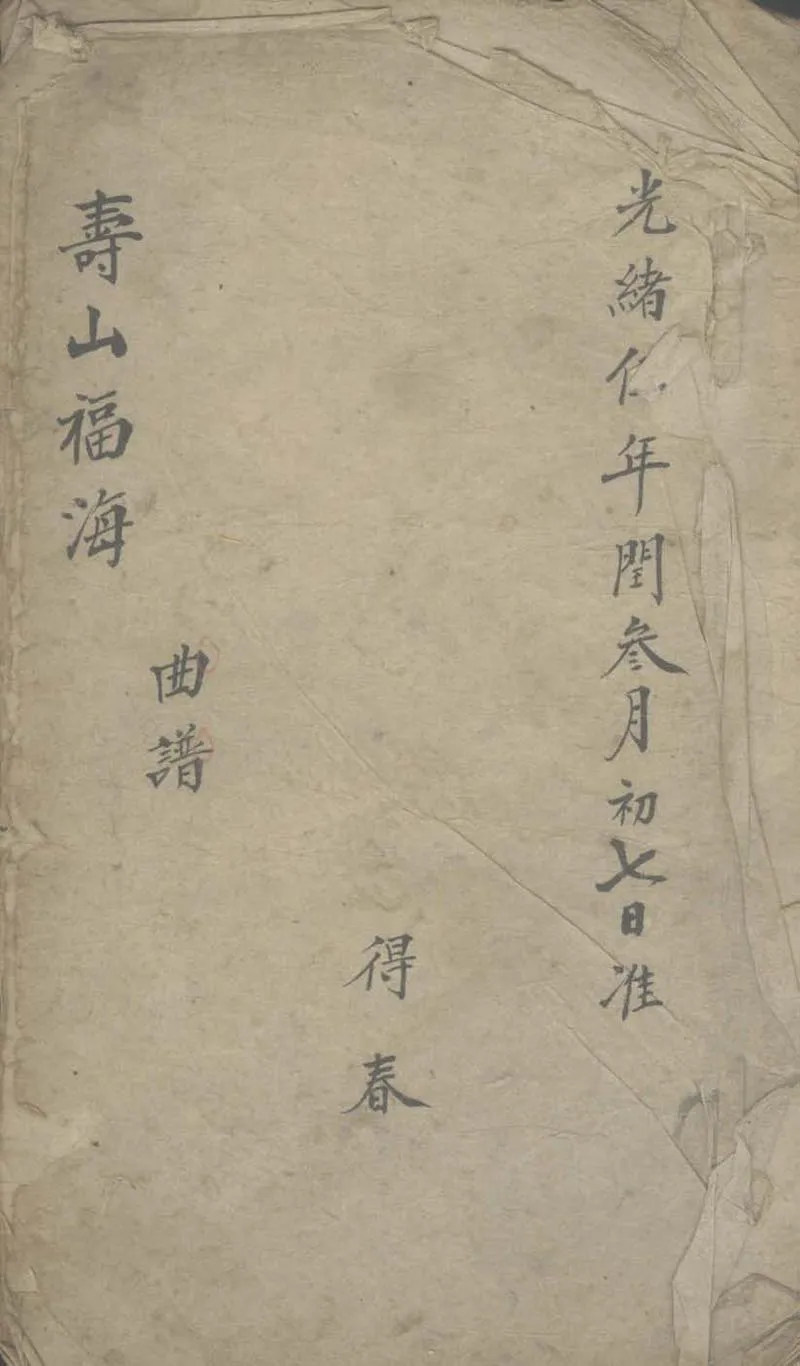 光緒伍年閏叁月初七日准
得春
壽山福海
曲譜